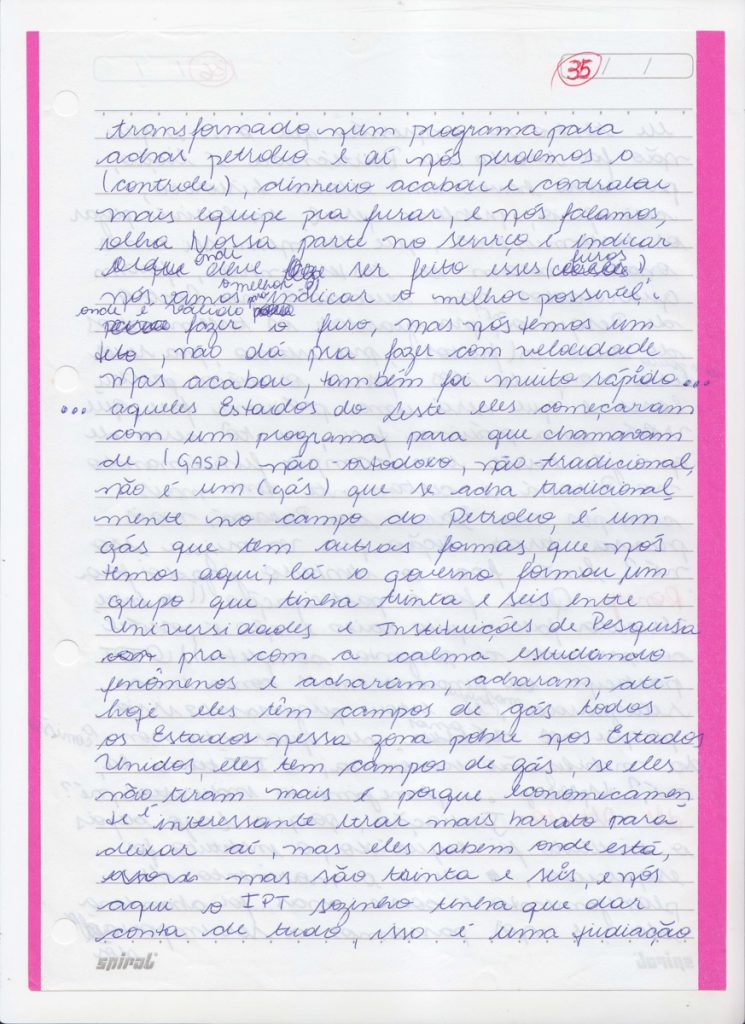 35 / /
transformado num programa para
achar petroleo e aí nós perdemos o
(controle), dinheiro acabou e contratar
mais equipe pra furar, e nós falamos,
olha Nossa parte no serviço é indicar
onde deve ser feito esses (furos)
nós vamos indicar o melhor possível,
o melhor
onde é válido pra
fazer o furo, mas nós temos um
teto, não dá pra fazer com velocidade
Mas acabou, também foi muito rápido...
... aqueles Estados do Leste eles começaram
com um programa para que chamavam
de (GASP) não-ortodoxo, não-tradicional,
não é um (gás) que se acha tradicional-
mente no campo do Petroleo, é um
gás que tem outras formas, que nós
temos aqui, lá o governo formou um
grupo que tinha trinta e seis entre
Universidades e Instituições de Pesquisa
pra com a calma estudando
fenômenos e acharam, acharam, até
hoje eles têm campos de gás todos
os Estados nessa zona pobre nos Estados
Unidos, eles tem campos de gás, se eles
não tiram mais é porque economicamen-
te é interessante tirar mais barato para
deixar aí, mas eles sabem onde está,
mas são trinta e seis, e nós
aqui o IPT sozinho tinha que dar
conta de tudo, isso é uma judiação
spiral